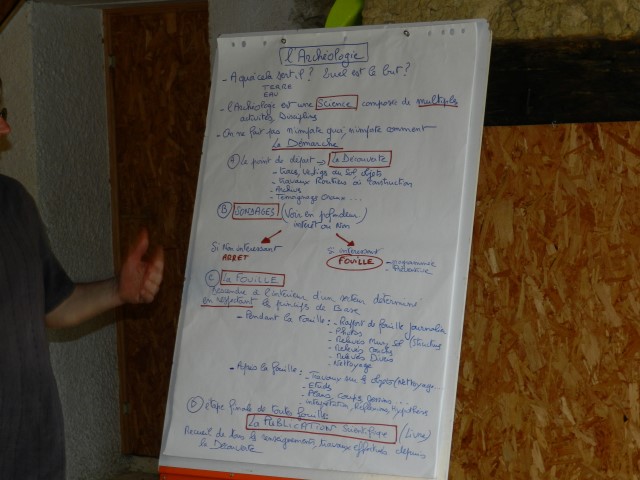 l'Archéologie
- A quoi cela sert-il ? Quel est le but ?
TERRE
EAU
- l'Archéologie est une Science composée de multiples
activités Disciplins
- On ne fait pas n'importe quoi, n'importe comment
La Démarche
A Le point de départ → La Découverte
- Traces, Vestiges au Sol, objets
- Travaux Routiers ou Construction
- Archives
- Témoignage oraux...
B SONDAGES (Voir en profondeur)
- intérêt ou Non
Si Non intéressant
ARRET
Si intéressant
FOUILLE
- programmée
C La FOUILLE
Descendre à l'intérieur d'un secteur déterminé
en respectant les principes de Base
- Pendant la Fouille : - Rapport de fouille journalier
- Photos
- Relevés Mur, Sol (Structure
- Relevés couches
- Relevés Divers
- Nettoyage
- Après la fouille : - Travaux sur les objets (Nettoyage...
- Etudes
- Plans, coups, dessins...
- interprétation, Réflexions, Hypothèses
D étape finale de toutes fouille
La PUBLICATION Scientifique (Livre)
Recueil de tous les renseignements, travaux effectués depuis
la Découverte